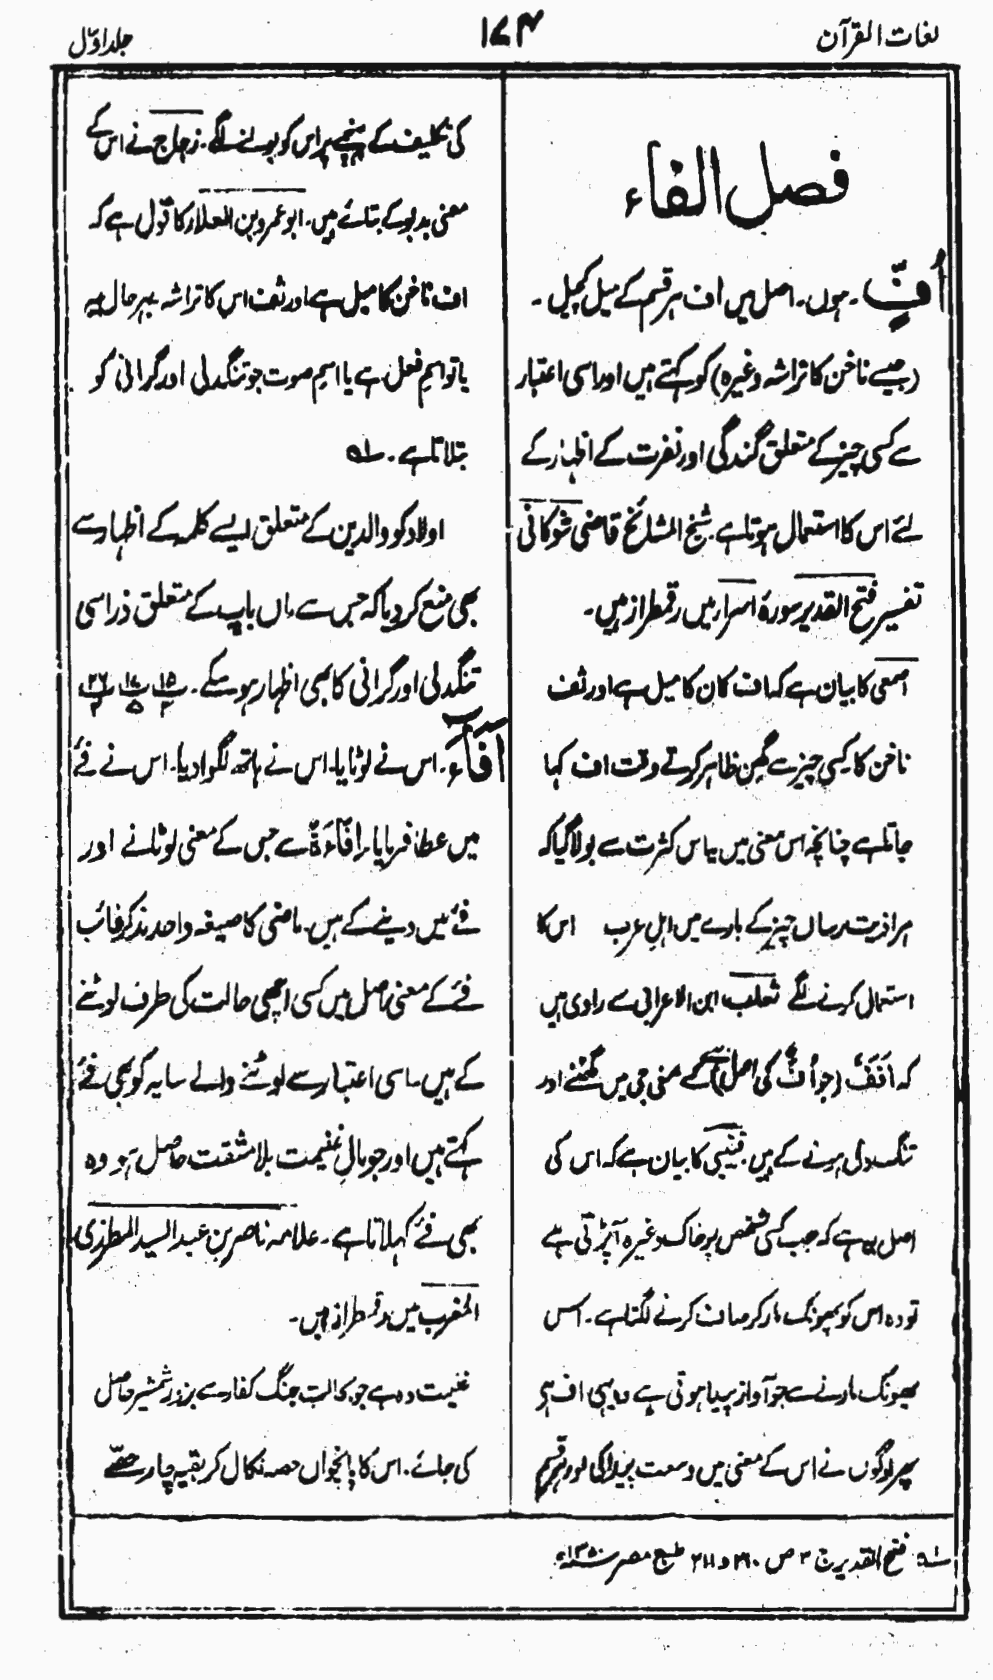 لغات القرآن
۱۷۴
جلد اوّل
فصل الفاء
اُفٍّ ۔ ہوں۔ اصل میں اف ہر قسم کے میل کچیل ۔
(جیسے ناخن کا تراشہ وغیرہ) کو کہتے ہیں اور اسی اعتبار
سے کسی چیز کے متعلق گندگی اور نفرت کے اظہار کے
لئے اس کا استعمال ہوتا ہے۔ شیخ المشائخ قاضی شوکانی
تفسیر فتح القدیر سورۂ اسراء میں رقمطراز ہیں۔
اصمعی کا بیان ہے کہ اف کان کا میل ہے اور تف
ناخن کا۔ کسی چیز سے گھن ظاہر کرتے وقت اف کہا
جاتا ہے چنانچہ اس معنی میں یہ اس کثرت سے بولا گیا کہ
ہر اذیت رساں چیز کے بارے میں اہلِ عرب اس کا
استعمال کرنے لگے ثعلب ابن الاعرابی سے راوی ہیں
کہ اَفَفٌ (جو اُفٌّ کی اصل ہے) کے معنی جی میں گھٹنے اور
تنگ دلی ہونے کے ہیں۔ قتیبی کا بیان ہے کہ اس کی
اصل یہ ہے کہ جب کسی شخص پر خاک وغیرہ آپڑتی ہے
تو وہ اس کو پھونک مار کر صاف کرنے لگتا ہے۔ اس
پھونک مارنے سے جو آواز پیدا ہوتی ہے وہ یہی اف ہے
پھر لوگوں نے اس کے معنی میں وسعت پیدا کی اور ہر قسم
کی تکلیف کے پہنچنے پر اس کو بولنے لگے۔ زجاج نے اس کے
معنی بدبو کے بتائے ہیں۔ ابو عمرو بن العلاء کا قول ہے کہ
اف ناخن کا میل ہے اور تف اس کا تراشہ بہرحال یہ
یا تو اسمِ فعل ہے یا اسمِ صوت جو تنگدلی اور گرانی کو
بتلاتا ہے۔ لہ
اولاد کو والدین کے متعلق ایسے کلمہ کے اظہار سے
بھی منع کر دیا کہ جس سے ماں باپ کے متعلق ذرا سی
تنگدلی اور گرانی کا بھی اظہار ہو سکے۔ پ۱۵ پ۱۷ پ۲۶
اَفَآءَ۔ اس نے لوٹایا۔ اس نے ہاتھ لگوا دیا۔ اس نے فئے
میں عطا فرمایا۔ اِفَاءَۃٌ سے جس کے معنی لوٹانے اور
فئے میں دینے کے ہیں۔ ماضی کا صیغہ واحد مذکر غائب
فئے کے معنی اصل میں کسی اچھی حالت کی طرف لوٹنے
کے ہیں۔ اسی اعتبار سے لوٹنے والے سایہ کو بھی فئے
کہتے ہیں اور جو مالِ غنیمت بلا مشقت حاصل ہو وہ
بھی فئے کہلاتا ہے۔ علامہ ناصر بن عبد السید المطرزی
المغرب میں رقمطراز ہیں۔
غنیمت وہ ہے جو بحالت جنگ کفار سے بزور شمشیر حاصل
کی جائے۔ اس کا پانچواں حصہ نکال کر بقیہ چار حصے
لہ فتح القدیر ج ۳ ص ۲۱۰ و ۲۱۱ طبع مصر ۱۳۵۰ھ